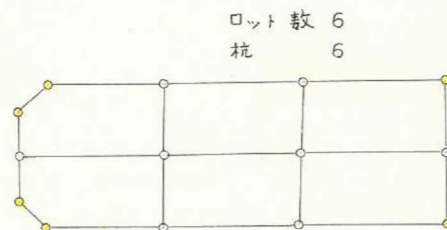 ロット数 6
杭 6